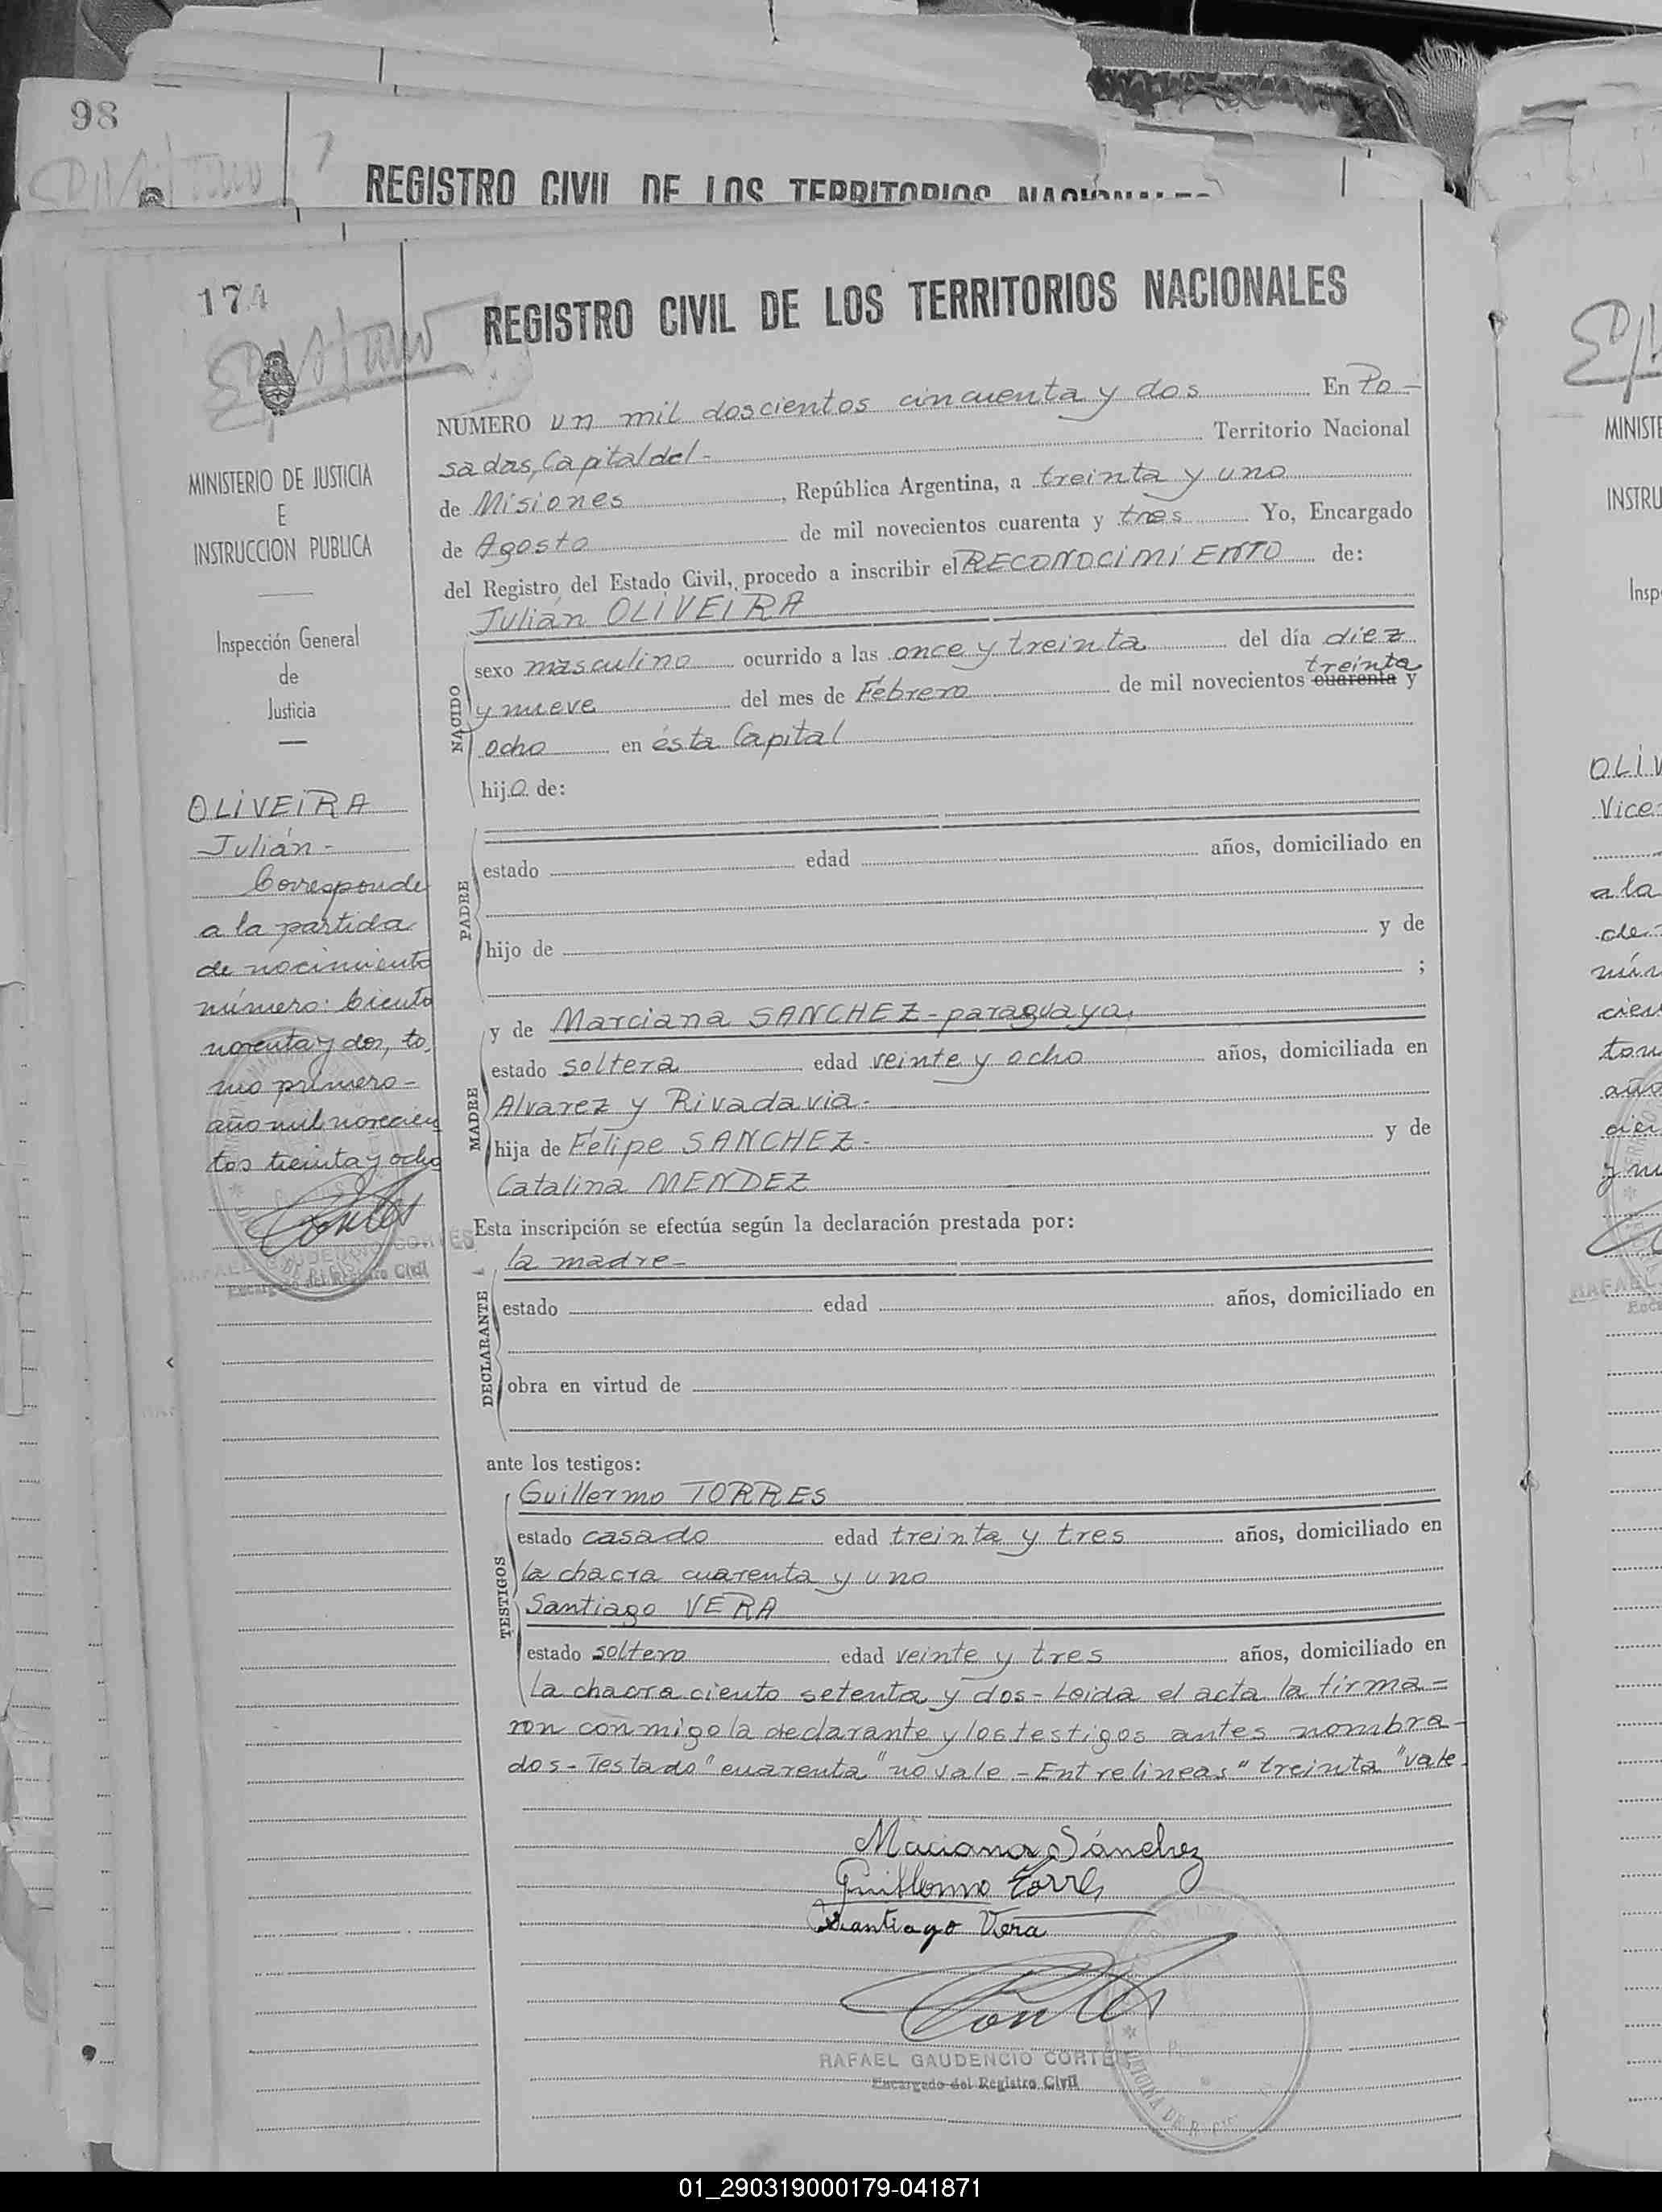 98
REGISTRO CIVIL DE LOS TERRITORIOS NACIONALES
174
REGISTRO CIVIL DE LOS TERRITORIOS NACIONALES
NUMERO un mil doscientos cincuenta y dos En Po-
sadas, Capital del- Territorio Nacional
de Misiones, República Argentina, a treinta y uno
de Agosto de mil novecientos cuarenta y tres Yo, Encargado
del Registro del Estado Civil, procedo a inscribir el RECONOCIMIENTO de:
Julián OLIVEIRA
NACIDO
sexo masculino ocurrido a las once y treinta del día diez
treinta
y nueve del mes de Febrero de mil novecientos cuarenta y
ocho en ésta Capital
hijo de:
PADRE
estado edad años, domiciliado en
hijo de y de
;
MADRE
y de Marciana SANCHEZ - paraguaya,
estado soltera edad veinte y ocho años, domiciliada en
Alvarez y Rivadavia.-
hija de Felipe SANCHEZ- y de
Catalina MENDEZ
Esta inscripción se efectúa según la declaración prestada por:
DECLARANTE
la madre-
estado edad años, domiciliado en
obra en virtud de
ante los testigos:
TESTIGOS
Guillermo TORRES
estado casado edad treinta y tres años, domiciliado en
la chacra cuarenta y uno
Santiago VERA
estado soltero edad veinte y tres años, domiciliado en
la chacra ciento setenta y dos - Leida el acta la firma=
ron conmigo la declarante y los testigos antes nombra-
dos - Testado "cuarenta" no vale - Entrelineas "treinta" vale.
Maciana Sánchez
Guillermo Torres
Santiago Vera
Cortes
RAFAEL GAUDENCIO CORTES
Encargado del Registro Civil
MINISTERIO DE JUSTICIA
E
INSTRUCCION PUBLICA
Inspección General
de
Justicia
OLIVEIRA
Julián-
Corresponde
a la partida
de nacimiento
número: Ciento
noventa y dos, to,
mo primero-
año mil novecien
tos treinta y ocho
Cortes
RAFAEL GAUDENCIO CORTES
Encargado del Registro Civil
MINISTE
INSTRU
Insp
OLIV
Vice
a la
de
núm
cien
tom
año
RAFAEL
Enca
01_290319000179-041871